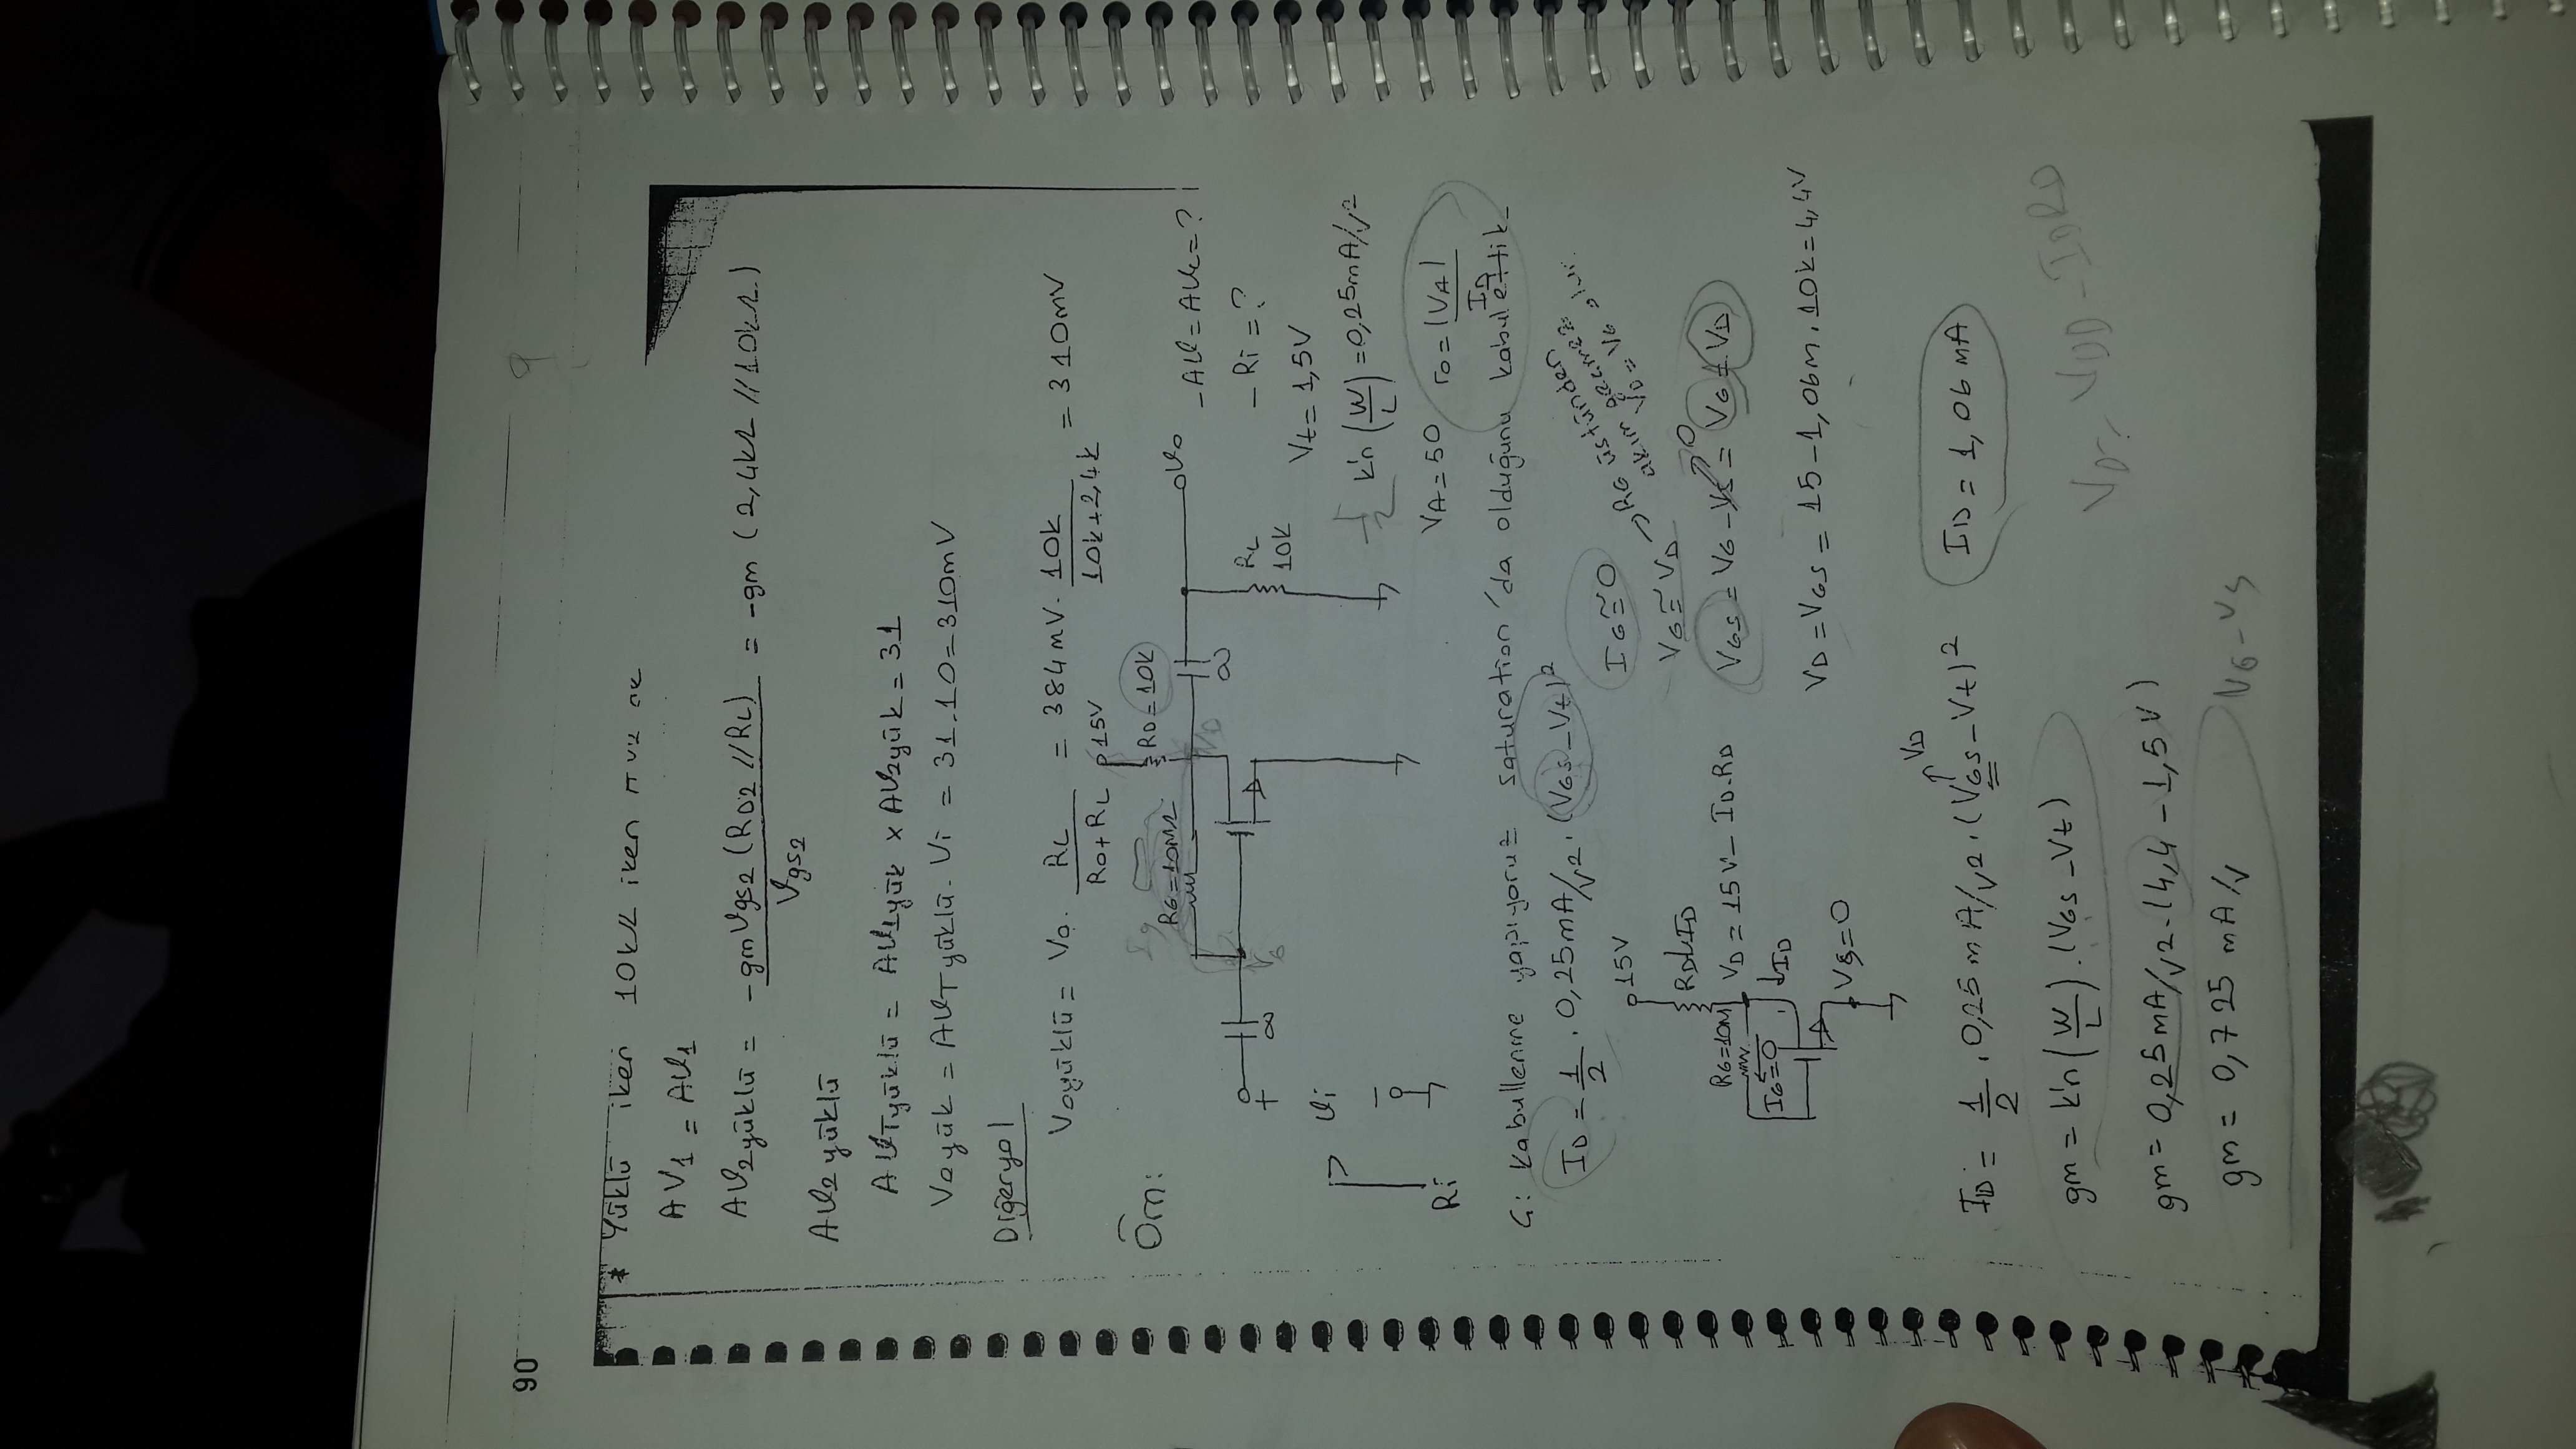 90
9
* Yüklü iken 10kΩ iken
AV1 = AV1
AV2yüklü = -gmVgs2 (RD2 // RL) / Vgs2 = -gm (2,4kΩ // 10kΩ)
AV2 yüklü
AVTyüklü = AV1yük x AV2yük = 31
Voyük = AVTyüklü. Vi = 31.10 = 310mV
Diğeryol
Voyüklü = Vo. RL / Ro+RL = 384mV. 10k / 10k+2,4k = 310mV
Örn:
15V
RD = 10K
Ig
RG = 10MΩ
VD
Vo
- AV = AVL = ?
∞
∞
VG
+
RL
10K
- Ri = ?
Vt = 1,5V
Vi
-
Ri
1/2 k'n (W/L) = 0,25mA/V2
VA = 50 ro = |VA| / ID
Ç: Kabullenme yapıyoruz saturation'da olduğunu kabul ettik-
ID = 1/2 . 0,25mA/V2. (VGS - Vt)2
IG ≅ 0
VG ≅ VD → RG üstünden
akım geçmez.
VD = VG olur.
15V
RD ↓ID
RG = 10M VD = 15V - ID.RD
VGS = VG - VS = VG = VD
0
IG = 0 ↓ID
VS = 0
VD = VGS = 15 - 1,06m . 10k = 4,4V
VD
ID = 1/2 . 0,25mA/V2. (VGS - Vt)2 ID = 1,06mA
gm = k'n (W/L) . (VGS - Vt)
VD = VDD - IDRD
gm = 0,25mA/V2. (4,4 - 1,5V)
gm = 0,725 mA/V
VG - VS